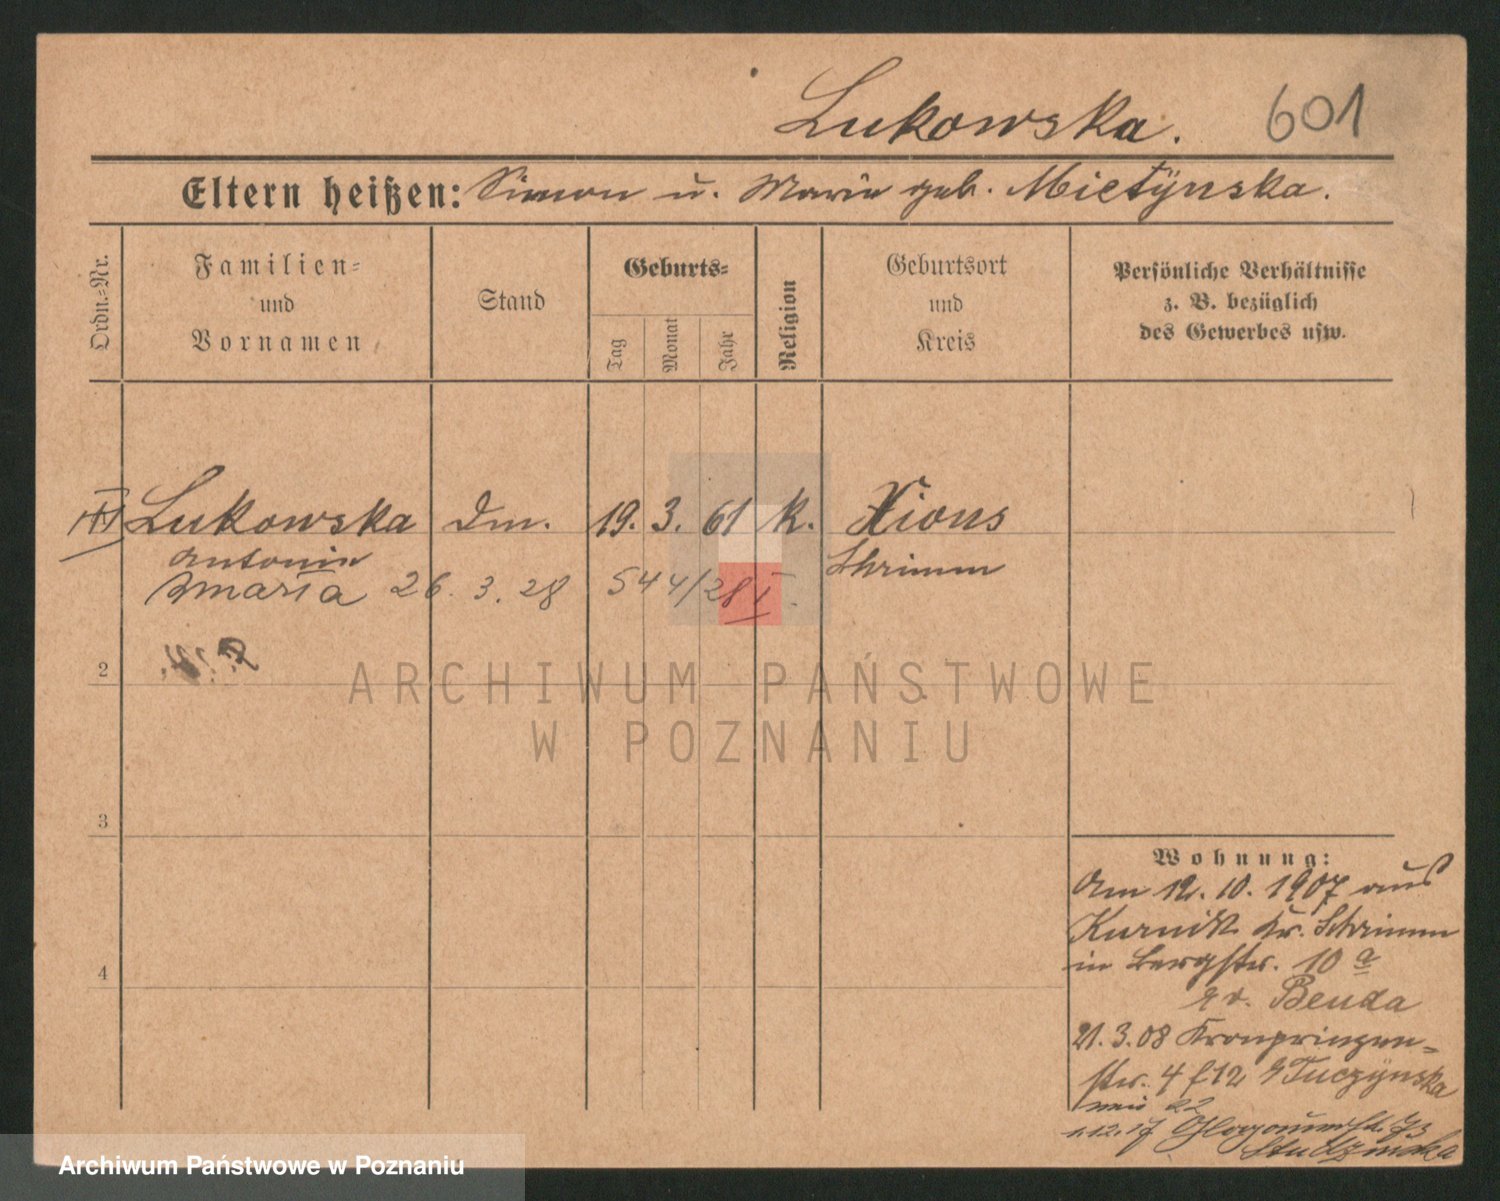 Lukowska.
601
Eltern heißen: Simon u. Marie geb. Mietÿnska.
Ordn.=Nr.
Familien=
und
Vornamen
Stand
Geburts=
Tag
Monat
Jahr
Religion
Geburtsort
und
Kreis
Persönliche Verhältnisse
z. B. bezüglich
des Gewerbes usw.
Lukowska
Dm.
19. 3. 61
k.
Xions
Antonie
Schrimm
Maria 26. 3. 28 544/28 I.
2
ARCHIWUM PAŃSTWOWE
W POZNANIU
3
4
Wohnung:
Am 12. 10. 1907 aus
Kurnik Kr. Schrimm
in Bergstr. 10 a
Benda
21. 3. 08 Kronprinzen-
str. 4 Tuczÿnska
1.12.17 Glogauerstr.
Studzinska
Archiwum Państwowe w Poznaniu